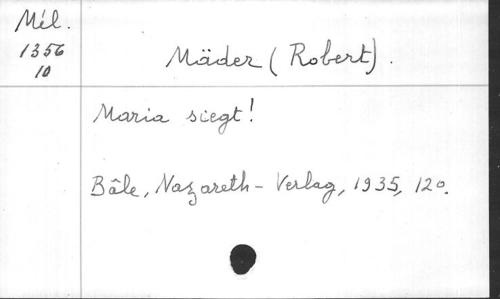 Mél.
1356
10
Mäder (Robert).
Maria siegt!
Bâle, Nazareth-Verlag, 1935, 12o.